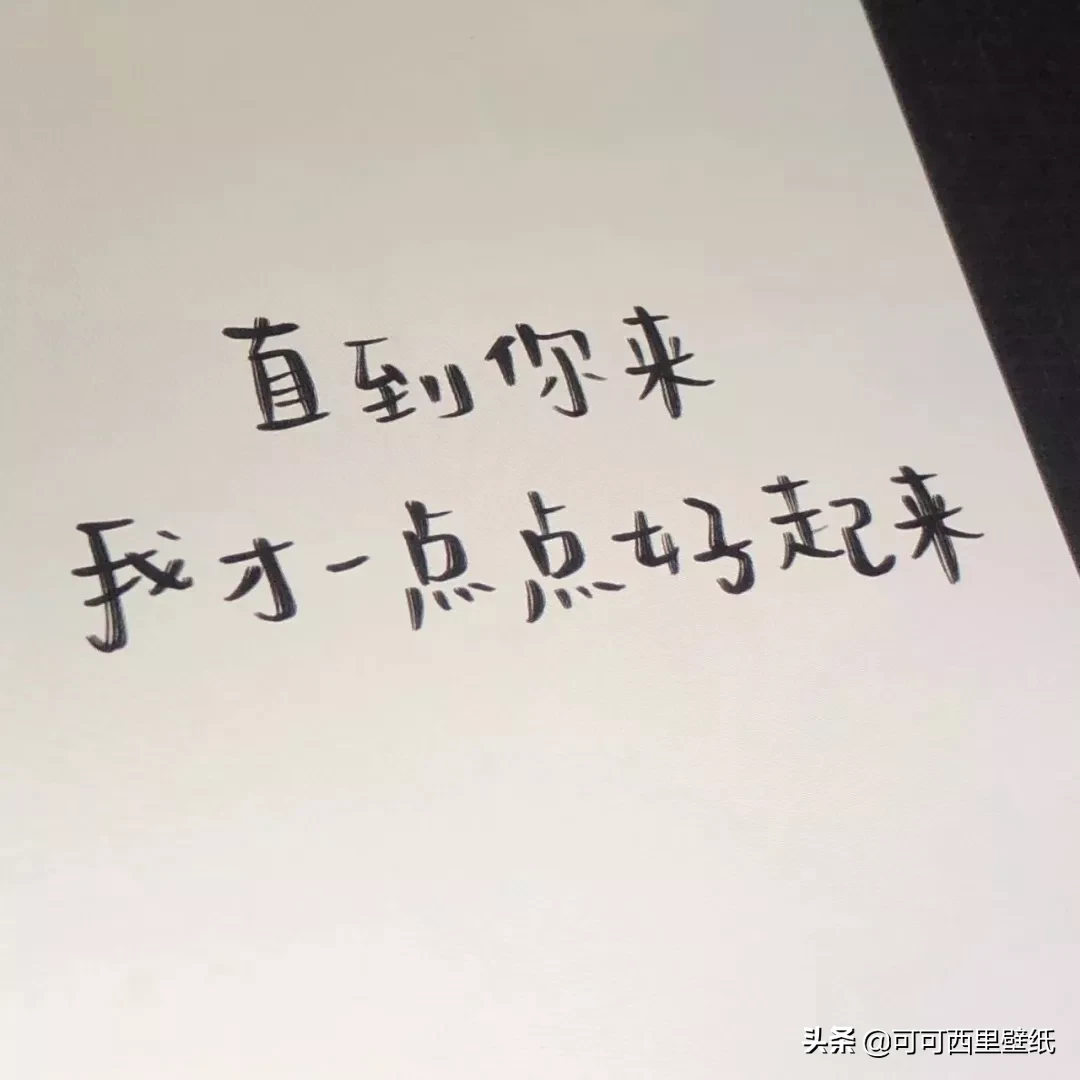 直到你来
我才一点点好起来
头条 @可可西里壁纸